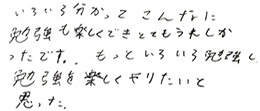 いろいろ分かって こんなに
勉強も楽しくできとてもうれしか
ったです。もっといろいろ勉強し
勉強を楽しくやりたいと
思った。